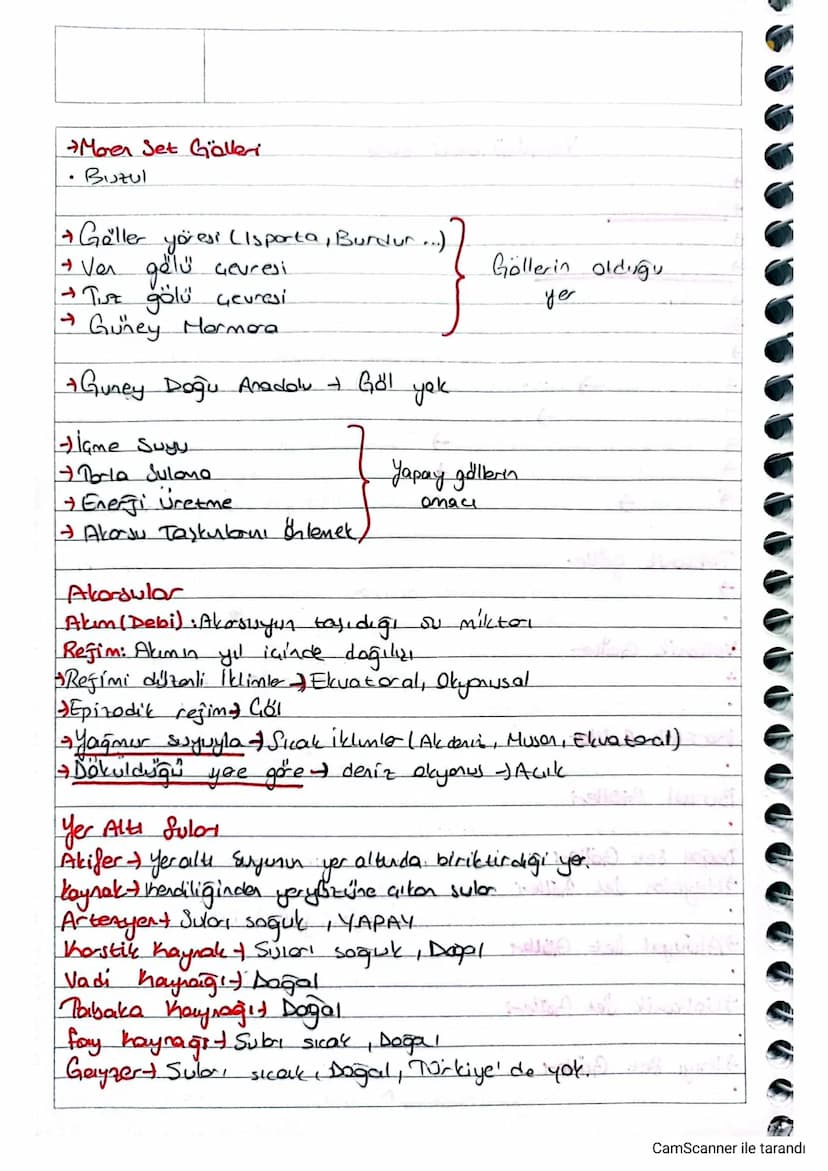 →Moren Set Gölleri
• Buzul
→ Göller yöresi (Isparta, Burdur ...)
→ Van gölü çevresi
→ Tuz gölü çevresi
→ Güney Marmara
Göllerin olduğu
yer
→Guney Doğu Anadolu → Göl yok
→İçme Suyu
→Tarla Sulama
→ Enerji Üretme
→ Akarsu Taşkınlarını Önlemek
Yapay göllerin
amacı
Akarsular
Akım (Debi) : Akarsuyun taşıdığı su miktarı
Rejim: Akımın yıl içinde dağılışı
→Rejimi düzenli İklimler→Ekvatoral, Okyanusal
→Epizodik rejim→ Çöl
→Yağmur suyuyla→Sıcak iklimler (Akdeniz, Muson, Ekvatoral)
→Döküldüğü yere göre→ deniz okyanus →Açık
Yer Altı Suları
Akifer→ Yeraltı suyunun yer altında biriktirdiği yer.
Kaynak→ Kendiliğinden yeryüzüne çıkan sular
Artezyen→ Suları soğuk, YAPAY
Karstik Kaynak → Suları soğuk, Doğal
Vadi Kaynağı→ Doğal
Tabaka Kaynağı→ Doğal
fay kaynağı→ Suları sıcak, Doğal
Gayzer→ Suları sıcak, Doğal, Türkiye' de yok.
CamScanner ile tarandı